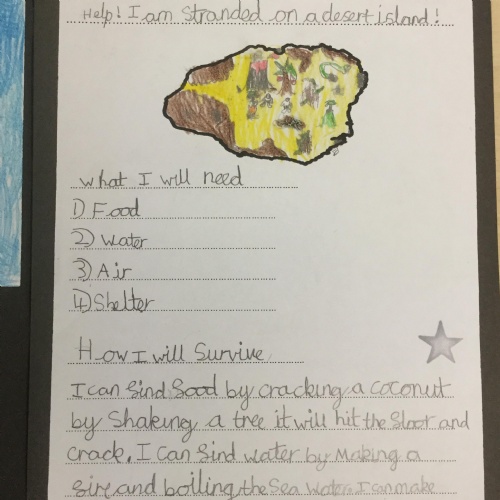 Help! I am stranded on a desert island!
what I will need
1) Food
2) water
3) Air
4) Shelter
How I will Survive
I can find food by cracking a coconut
by Shakeing a tree it will hit the floor and
crack. I can find water by Making a
fire and boiling the Sea Water. I can make